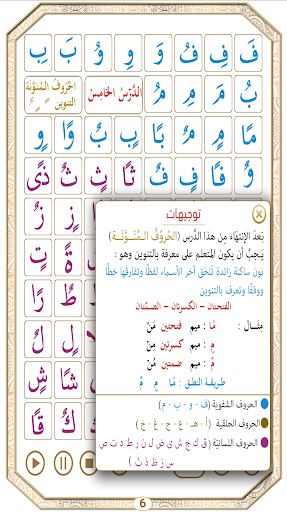 فَ فِ فُ وَ وِ وُ بَ بِ
بُ مَ مِ مُ الدَّرْسُ الخَامِسُ الحُرُوفُ المُنَوَّنَة التنوين ـًـٍـٌ
مًا مٍ مٌ بًا بٍ بٌ وًا وٍ
وٌ فًا فٍ فٌ ثًا ثٍ ثٌ ذًى
زٍ زٌ
ةً ةٍ
طًا رٌ
شًا شٍ
كٌ قًا
توجيهات
بَعدَ الإنتِهَاءِ مِن هذا الدَّرس (الحُرُوفُ المُنَوَّنَة)
يَـجبُ أن يكون المتعلم على معرفة بالتنوين وهو :
نون ساكنة زائدة تَلحَق آخر الأسماء لفظًا وتفارقها خطًّا
ووقفًا وتعرف بالتنوين
الفتحتان - الكسرتان - الضمّتان
مِثَـال : مًا : ميم فتحتين مًنْ
مٍ : ميم كسرتين مٍنْ
مٌ : ميم ضمتين مٌنْ
طريقة النطق : مًا مٍ مٌ
الحروف الشفوية ( ف - و - ب - م )
الحروف الحلقية ( أ - هـ - ع - ح - غ - خ )
الحروف اللسانيّة ( ق ك ج ش ي ض ل ن ر ط د ت ص
س ز ظ ذ ث )
6